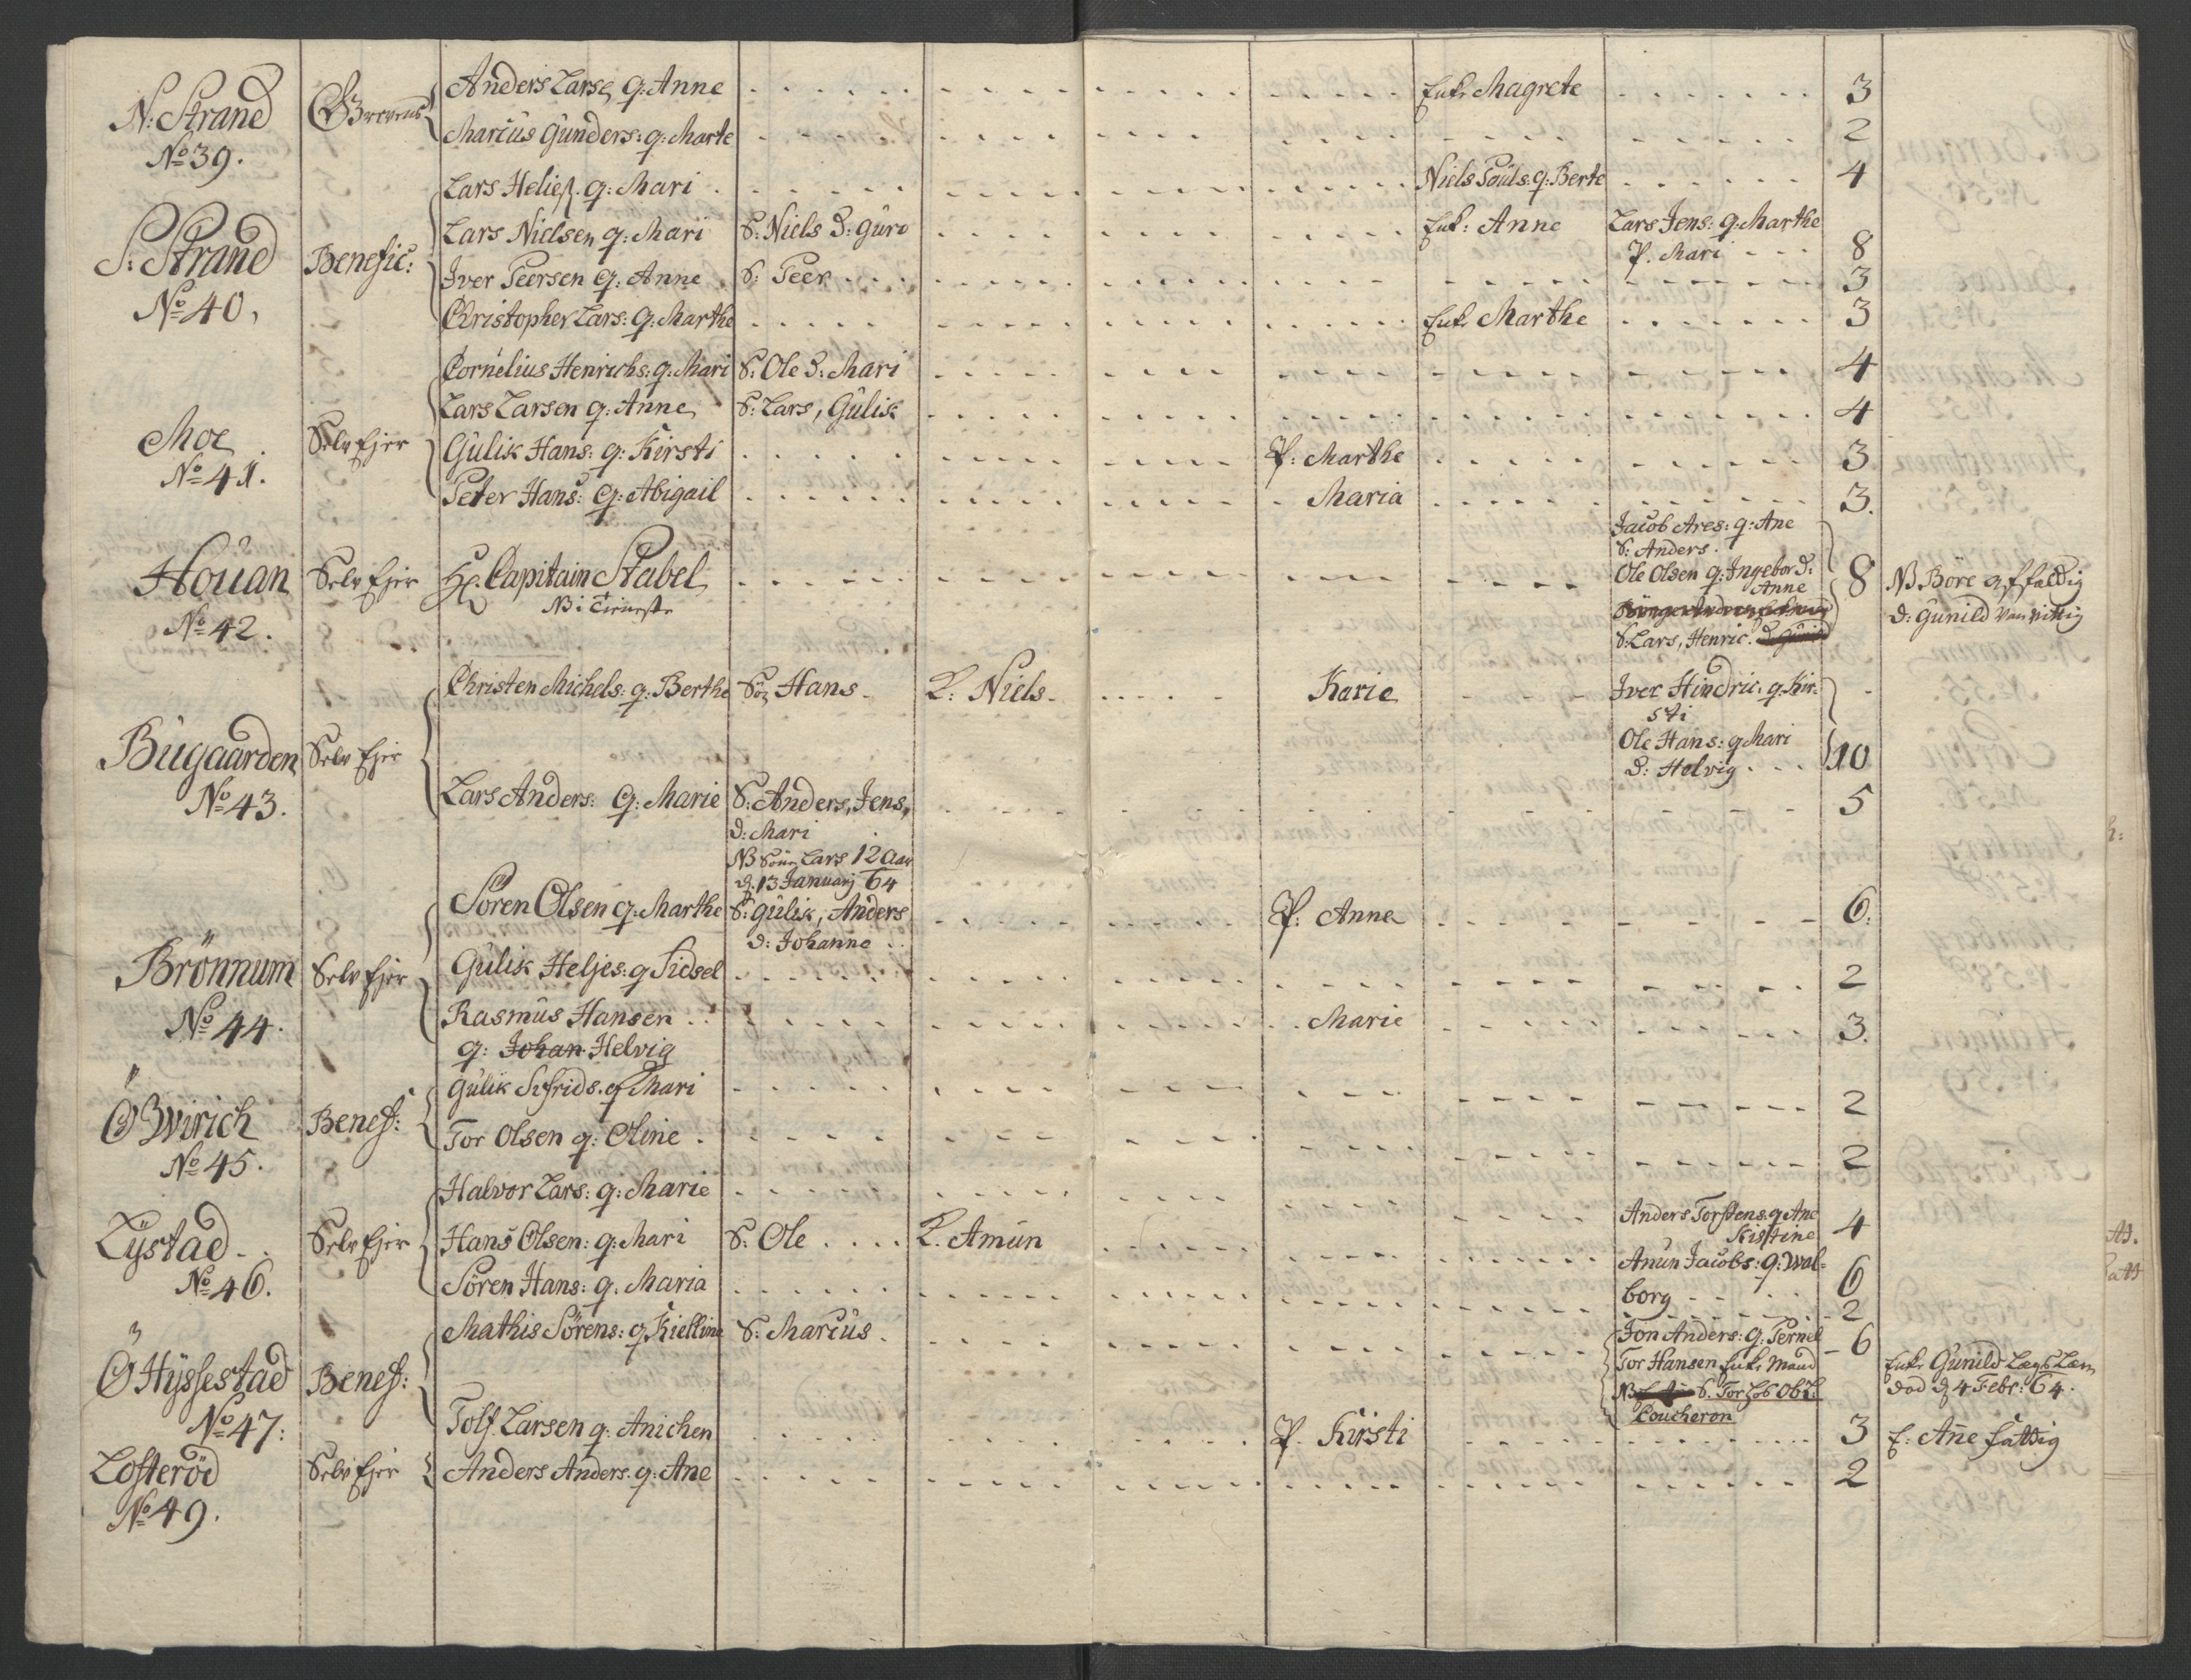 N: Strand Grevens Anders Larse q: Anne Enke Magrete 3
No 39. Marcus Gunders: q: Marte 2
Lars Helies. q: Mari Niels Pouls: q: Berte 4
S: Strand Benefic: Lars Nielsen q: Mari S: Niels D: Guro Enk: Anne Lars Jens: q: Marthe
P. Mari 8
No 40. Iver Peersen q: Anne S: Peer 3
Christopher Lars: q: Marthe Enke Marthe 3
Cornelius Henrichs: q: Mari S: Ole D: Mari 4
Lars Larsen q: Anne S: Lars, Gulik 4
Moe Selv Ejer Gulik Hans: q: Kirsti P: Marthe 3
No 41. Peter Hans: q: Abigail Maria 3.
Jacob Ares: q: Ane
S: Anders.
Houan Selv Ejer Hr. Capitain Stabel Ole Olsen q: Ingebor D:
Anne 8 NB Böre affældig
No 42. NB i Tieneste D: Gunild Vanvittig
S: Lars, Henric. D: Gunild
Christen Michels: q: Berthe Søn Hans L: Niels Karie Iver Hindric: q. Kir-
sti
Bugaarden Selv Ejer Ole Hans: q Mari
D: Helvig 10
No 43. Lars Anders: q: Marie S: Anders, Jens, 5
D: Mari
NB Søn Lars 12 Aar
d. 13 Januarj 64
Sören Olsen q: Marthe S: Gulik, Anders P: Anne 6:
D: Johanne
Brönnum Selv Ejer Gulik Heljes: q Sidsel 2
No 44. Rasmus Hansen Marie 3.
q: Johan Helvig
Gulik Sifrids. q Mari 2
Ö Wirich Benef: Tor Olsen q: Oline 2
No 45.
Halvor Lars: q: Marie Anders Torstens: q Ane
Kistine 4
Lystad Selv Ejer Hans Olsen: q: Mari S: Ole L. Amun Anun Jacobs: q: Wal-
borg 6
No 46. Sören Hans: q. Maria 2
Mathis Sörens: q Kielline S: Marcus Jon Anders: q: Pernel 6
Ö Hyssestad Benef: Tor Hansen Enke Mand Enke Gunild Lægs Lem
NB S. Tor Lob Obl: død d 4 Febr: 64.
Coucheron
No 47: Tolf Larsen q: Anichen P. Kirsti 3 E: Ane fattig
Losterød Selv Ejer Anders Anders. q: Ane 2
No 49.